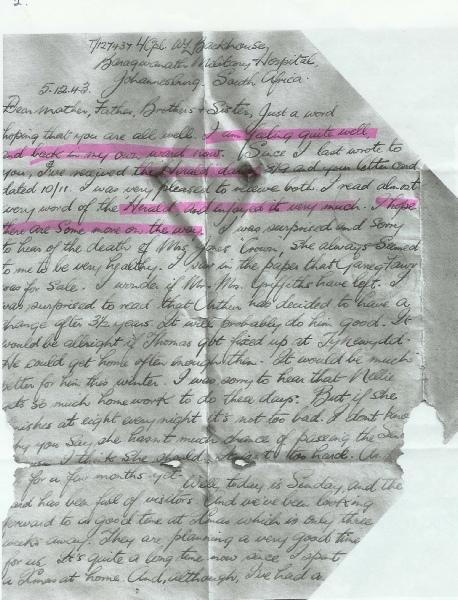 2.
T/127437 L/Cpl. W J Backhouse,
Baragwanath Military Hospital,
Johannesburg South Africa.
5.12.43.
Dear Mother, Father, Brothers & Sister, Just a word
hoping that you are all well. I am feeling quite well
and back in my own ward now. Since I last wrote to
you, I've received the Herald dated and your letter card
dated 10/11. I was very pleased to receive both. I read almost
very word of the Herald and enjoyed it very much. I hope
there are some more on the way. I was surprised and sorry
to hear of the death of Mrs. Brown, she always seemed
to me to be very healthy. I saw in the paper that
was for sale. I wonder if Mr. Mrs. Griffiths have left. I
was surprised to read that Arthur has decided to have a
change after 3½ years. It will probably do him good. It
would be alright if Thomas got fixed up at
He could get home often enough then. It would be much
better for him this winter. I was sorry to hear that Nellie
so much home work to do these days. But if she
nishes at eight every night it's not too bad. I don't know
hy you say she hasn't much chance of passing the
I think she should hard.
for a few months yet. Well today is Sunday, and the
and has been full of visitors. And we've been looking
forward to a good time at Xmas which is only three
weeks away. They are planning a very good time
for us. It's quite a long time now since I spent
a Xmas at home. And, although, I've had a